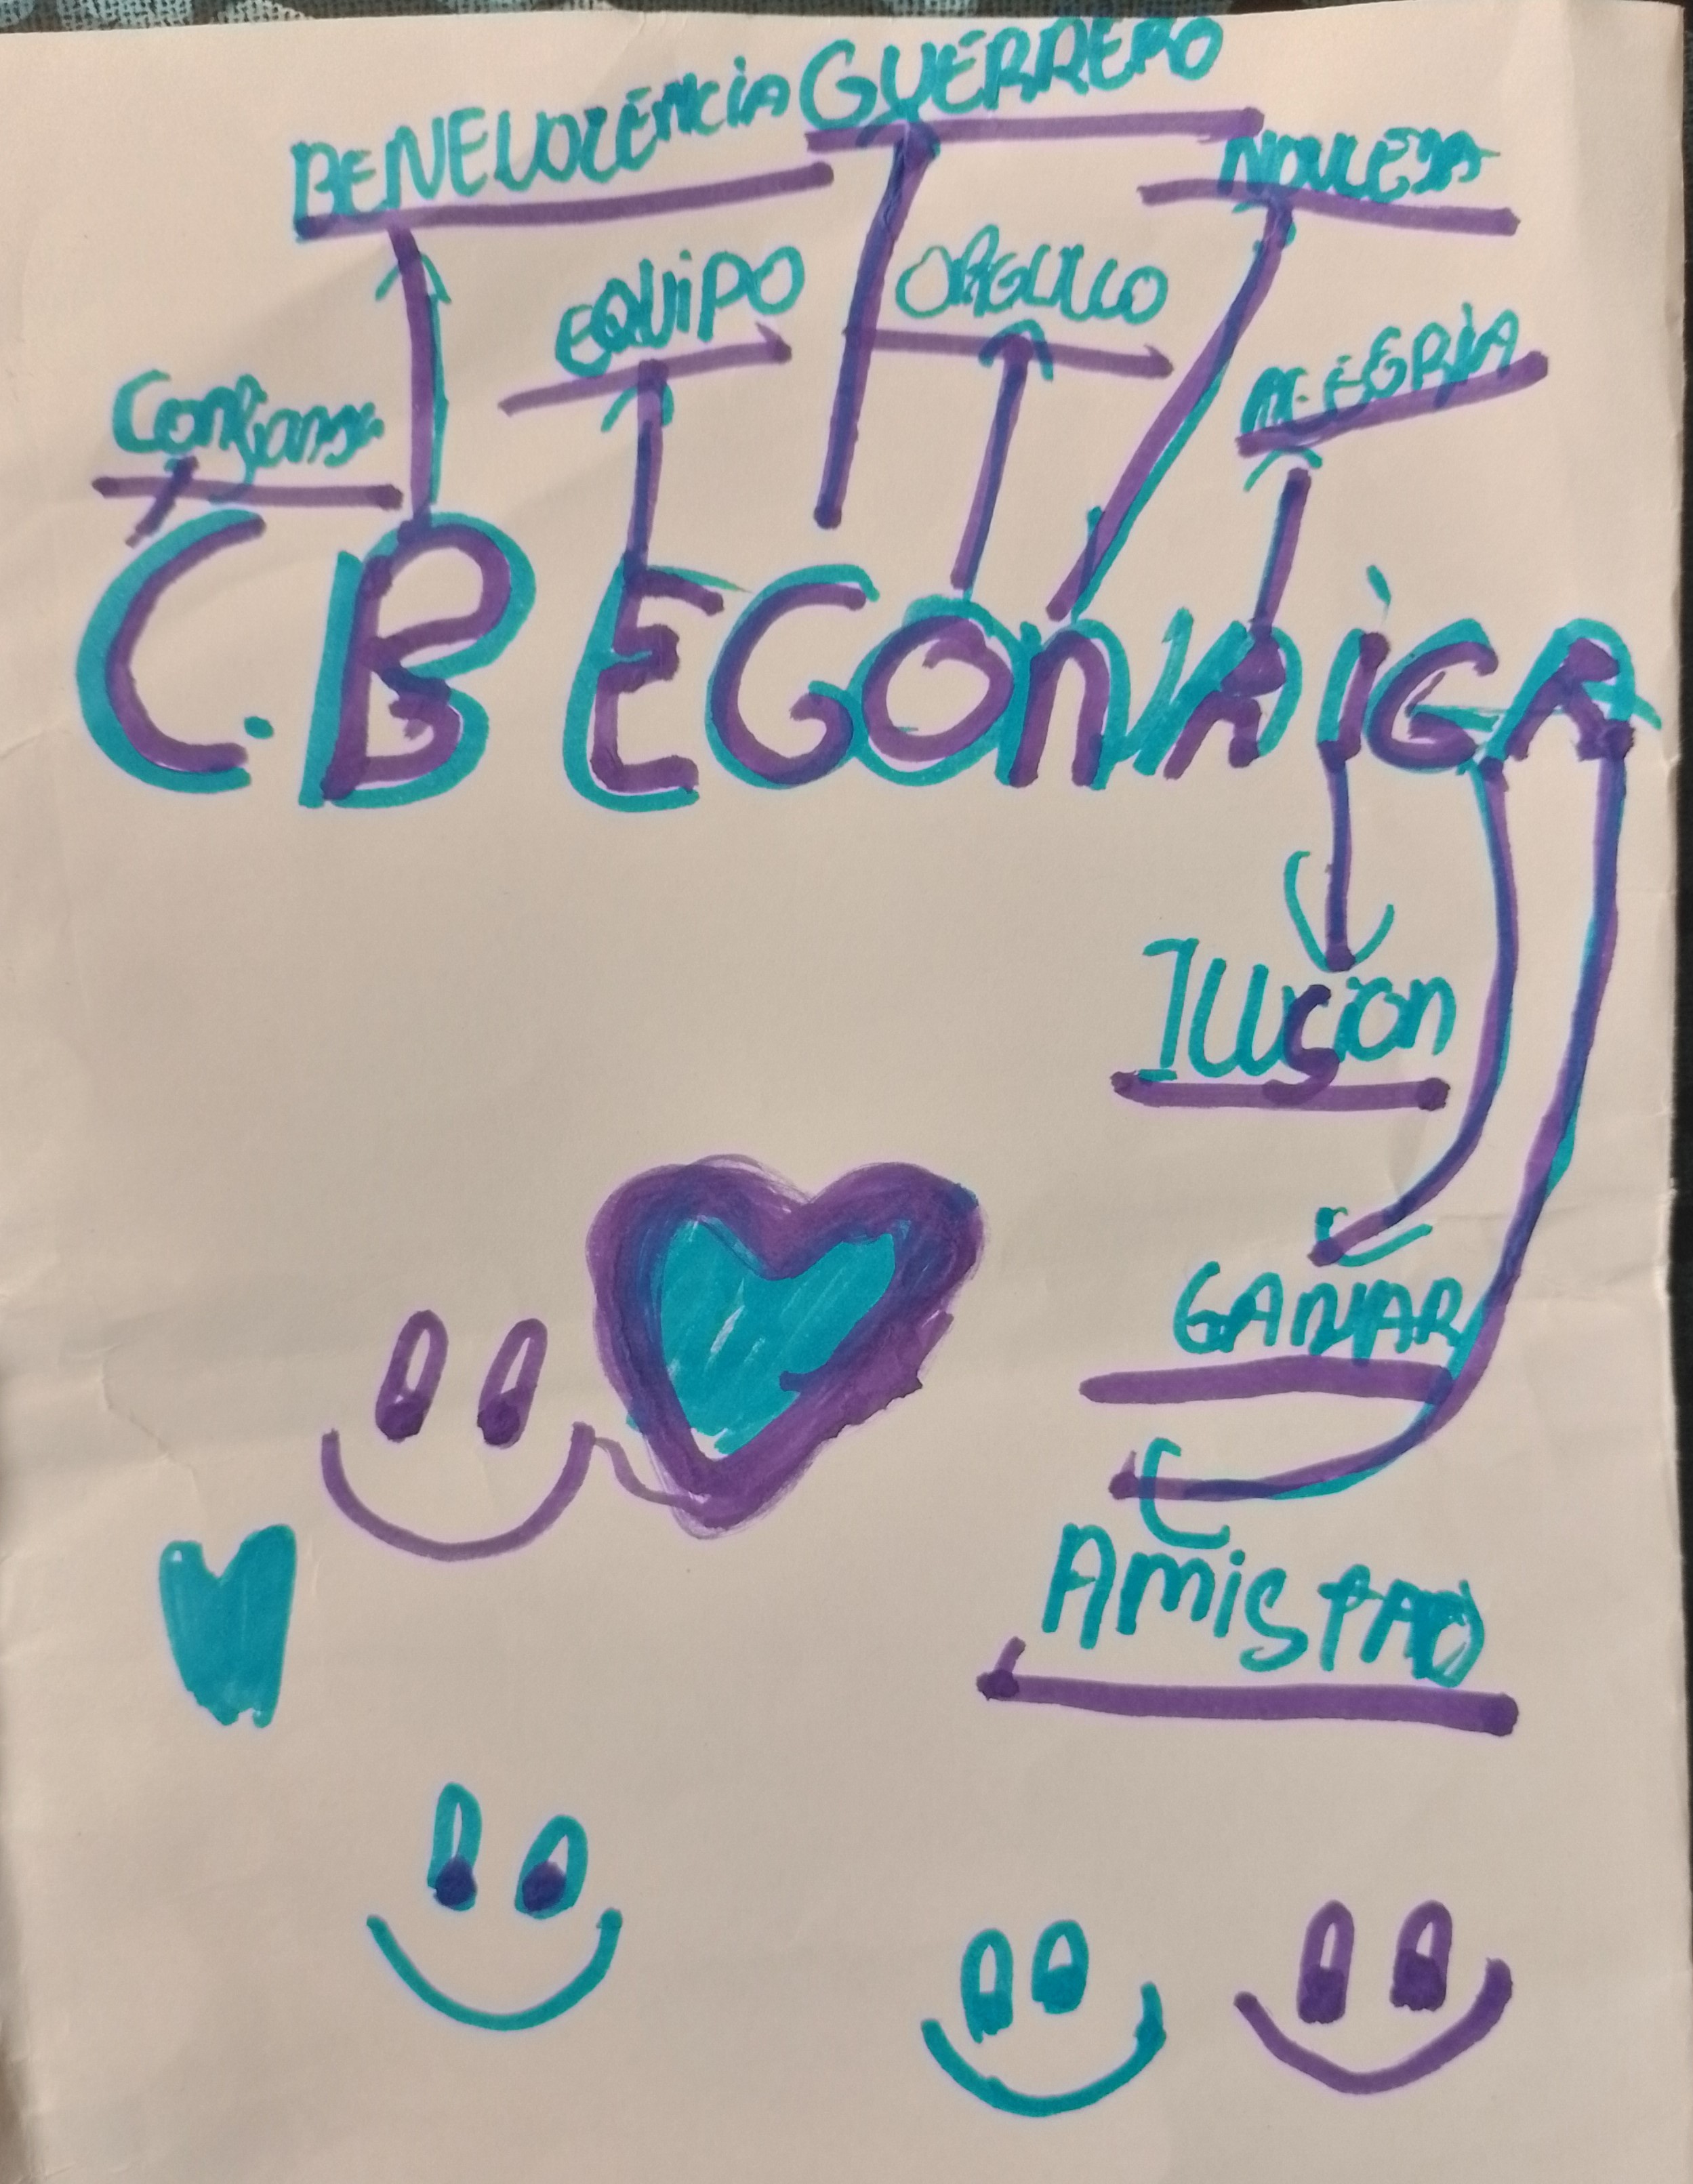 BENEVOLENCIA GUERRERO
NOVLEZA
EQUIPO ORGULLO
ALEGRÍA
Confianza
C.B EGONAIGA
ILUSion
GANAR
AmistAD